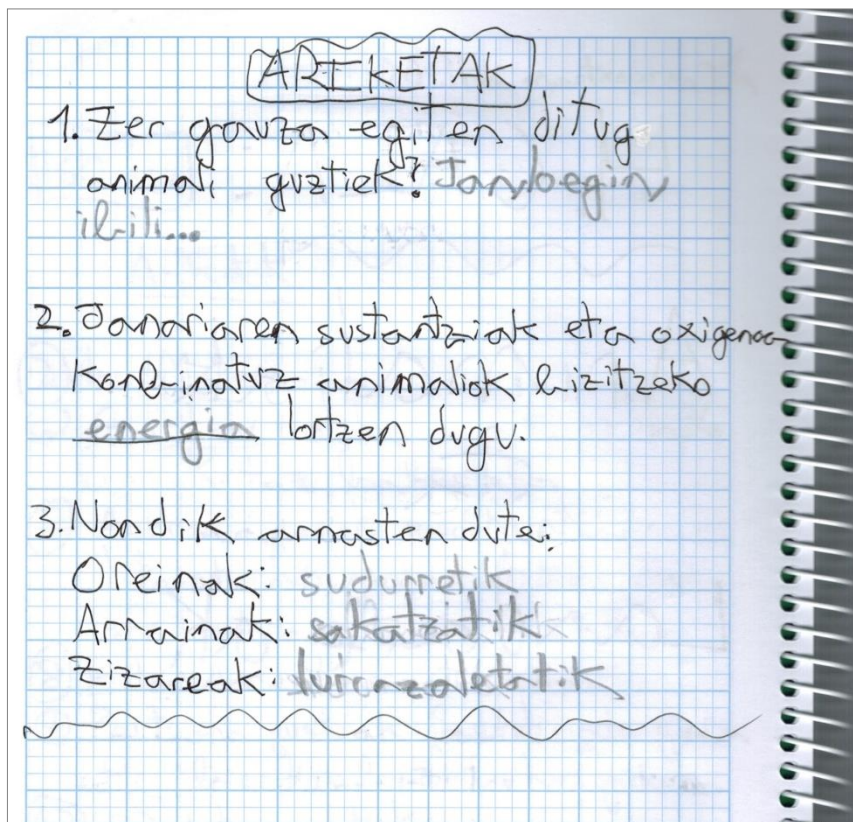 ARIKETAK
1. Zer gauza egiten ditug
animali guztiek? Jan, begin
ibili...
2. Janariaren sustantziak eta oxigenoa
konbinatuz animaliok bizitzeko
energia lortzen dugu.
3. Nondik arnasten dute:
Oreinak: sudurretik
Arrainak: sakatzatik
Zizareak: